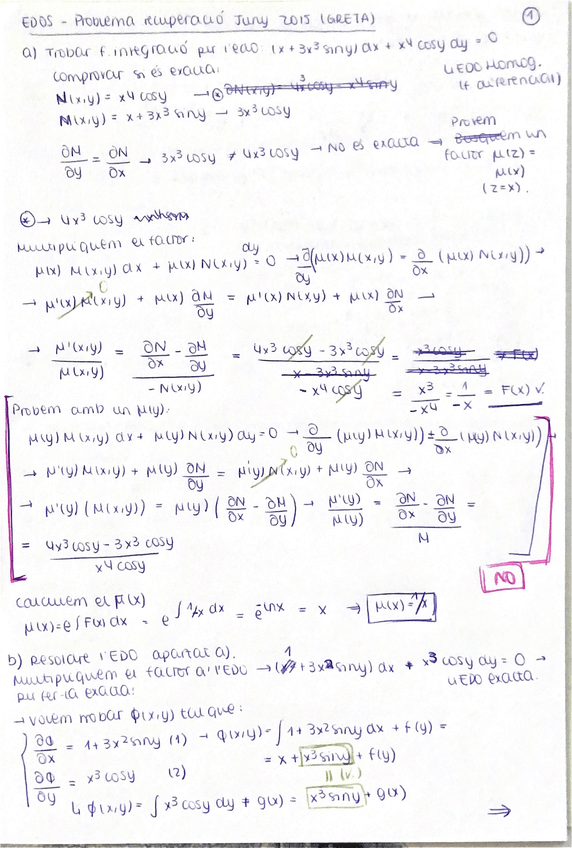 EDOS - Problema recuperació Juny 2015 (GRETA)
①
a) Trobar f. integració per l'edo: (x + 3x³ siny) dx + x⁴ cosy dy = 0
comprovar si és exacta:
↳ EDO Homog. (f diferencial)
N(x,y) = x⁴ cosy → ⊛
M(x,y) = x + 3x³ siny → 3x³ cosy
∂M/∂y = ∂N/∂x → 3x³ cosy ≠ 4x³ cosy → NO és exacta → Provem
un
factor μ(z) =
μ(x)
(z=x).
⊛ → 4x³ cosy
Multipliquem el factor:
μ(x) M(x,y) dx + μ(x) N(x,y) dy = 0 → ∂/∂y (μ(x) M(x,y) = ∂/∂x (μ(x) N(x,y)) →
→ μ'(x) M(x,y) 0 + μ(x) ∂M/∂y = μ'(x) N(x,y) + μ(x) ∂N/∂x →
→ μ'(x,y)/μ(x,y) = (∂N/∂x - ∂M/∂y)/(-N(x,y)) = (4x³ cosy - 3x³ cosy)/(-x⁴ cosy) = x³/-x⁴ = 1/-x = F(x) v.
Probem amb un μ(y):
μ(y) M(x,y) dx + μ(y) N(x,y) dy = 0 → ∂/∂y (μ(y) M(x,y)) = ∂/∂x (μ(y) N(x,y)) →
→ μ'(y) M(x,y) + μ(y) ∂M/∂y = μ'(y) N(x,y) 0 + μ(y) ∂N/∂x →
→ μ'(y) (M(x,y)) = μ(y) (∂N/∂x - ∂M/∂y) → μ'(y)/μ(y) = (∂N/∂x - ∂M/∂y)/M =
= (4x³ cosy - 3x³ cosy)/(x⁴ cosy)
NO
Calculem el μ(x)
μ(x) = e∫F(x) dx = e^∫1/x dx = e^-lnx = x ⇒ μ(x) = 1/x
b) Resoldre l'EDO apartat a).
Multipliquem el factor a l'EDO → (1 + 3x² siny) dx + x³ cosy dy = 0 →
per fer-la exacta:
↳ EDO exacta.
→ Volem trobar φ(x,y) tal que:
∂φ/∂x = 1 + 3x² siny (1) → φ(x,y) = ∫ 1 + 3x² siny dx + f(y) =
= x + x³ siny + f(y)
∂φ/∂y = x³ cosy (2)
|| (v.)
↳ φ(x,y) = ∫ x³ cosy dy + g(x) = x³ siny + g(x)
⇒